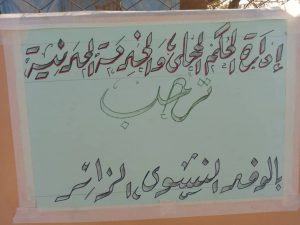 إدارة الحكم المحلى والخدمة المدنية
ترحب
بالوفد النسوى الزائر